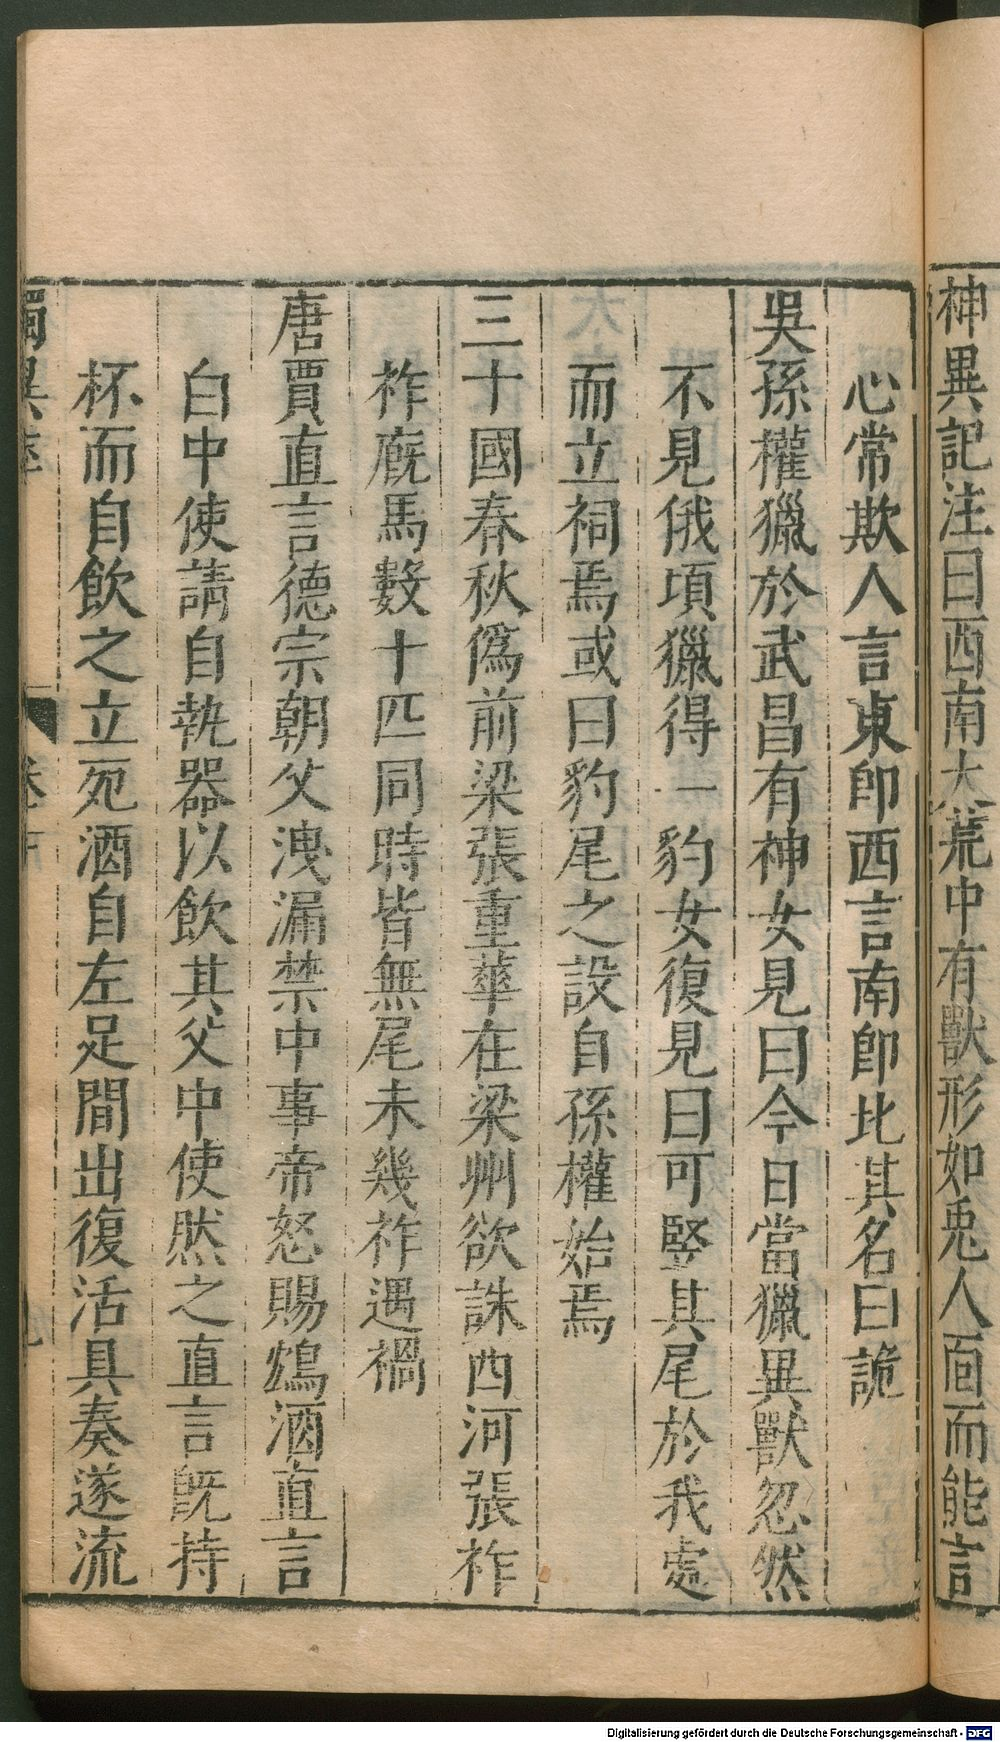 神異記注曰西南大荒中有獸形如兎人面而能言
心常欺人言東卽西言南卽北其名曰詭
吳孫權獵於武昌有神女見曰今日當獵異獸忽然
不見俄頃獵得一豹女復見曰可竪其尾於我處
而立祠焉或曰豹尾之設自孫權始焉
三十國春秋僞前梁張重華在梁州欲誅西河張祚
祚廐馬數十匹同時皆無尾未幾祚遇禍
唐賈直言德宗朝父洩漏禁中事帝怒賜鴆酒直言
白中使請自執器以飲其父中使然之直言旣持
杯而自飲之立死酒自左足間出復活具奏遂流
獨異 卷下
Digitalisierung gefördert durch die Deutsche Forschungsgemeinschaft - DFG